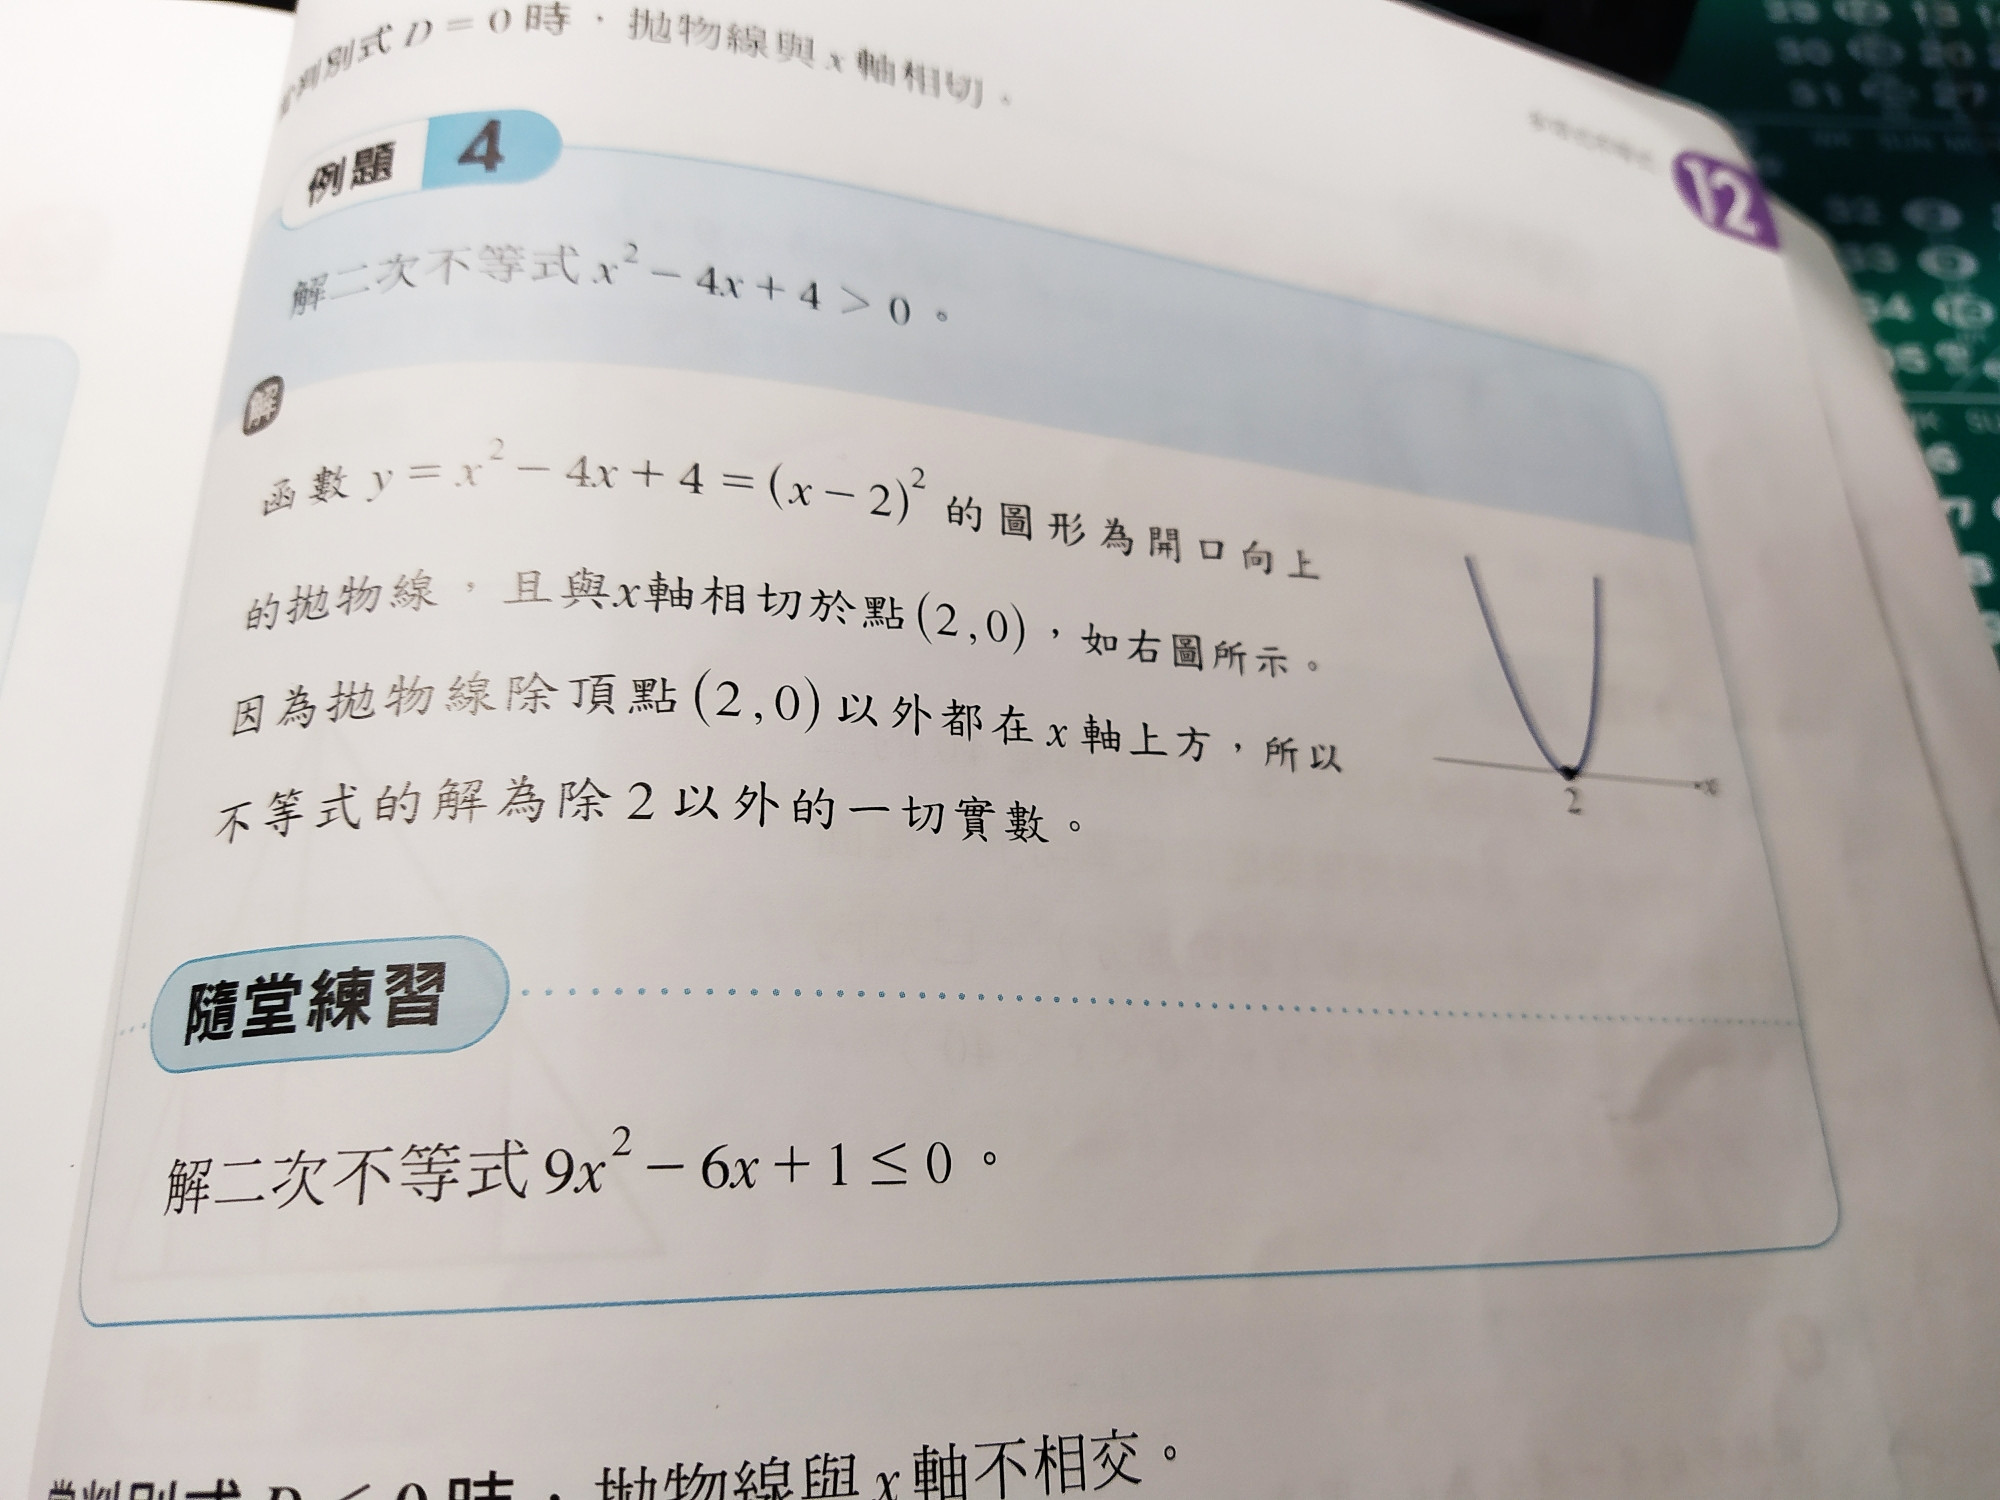 判別式 D = 0 時，拋物線與 x 軸相切。
12
例題 4
解二次不等式 x² − 4x + 4 > 0。
解
函數 y = x² − 4x + 4 = (x − 2)² 的圖形為開口向上
的拋物線，且與x軸相切於點(2,0)，如右圖所示。
因為拋物線除頂點(2,0)以外都在 x 軸上方，所以
不等式的解為除2以外的一切實數。
x
2
隨堂練習
解二次不等式 9x² − 6x + 1 ≤ 0。
當判別式 D < 0 時，拋物線與 x 軸不相交。